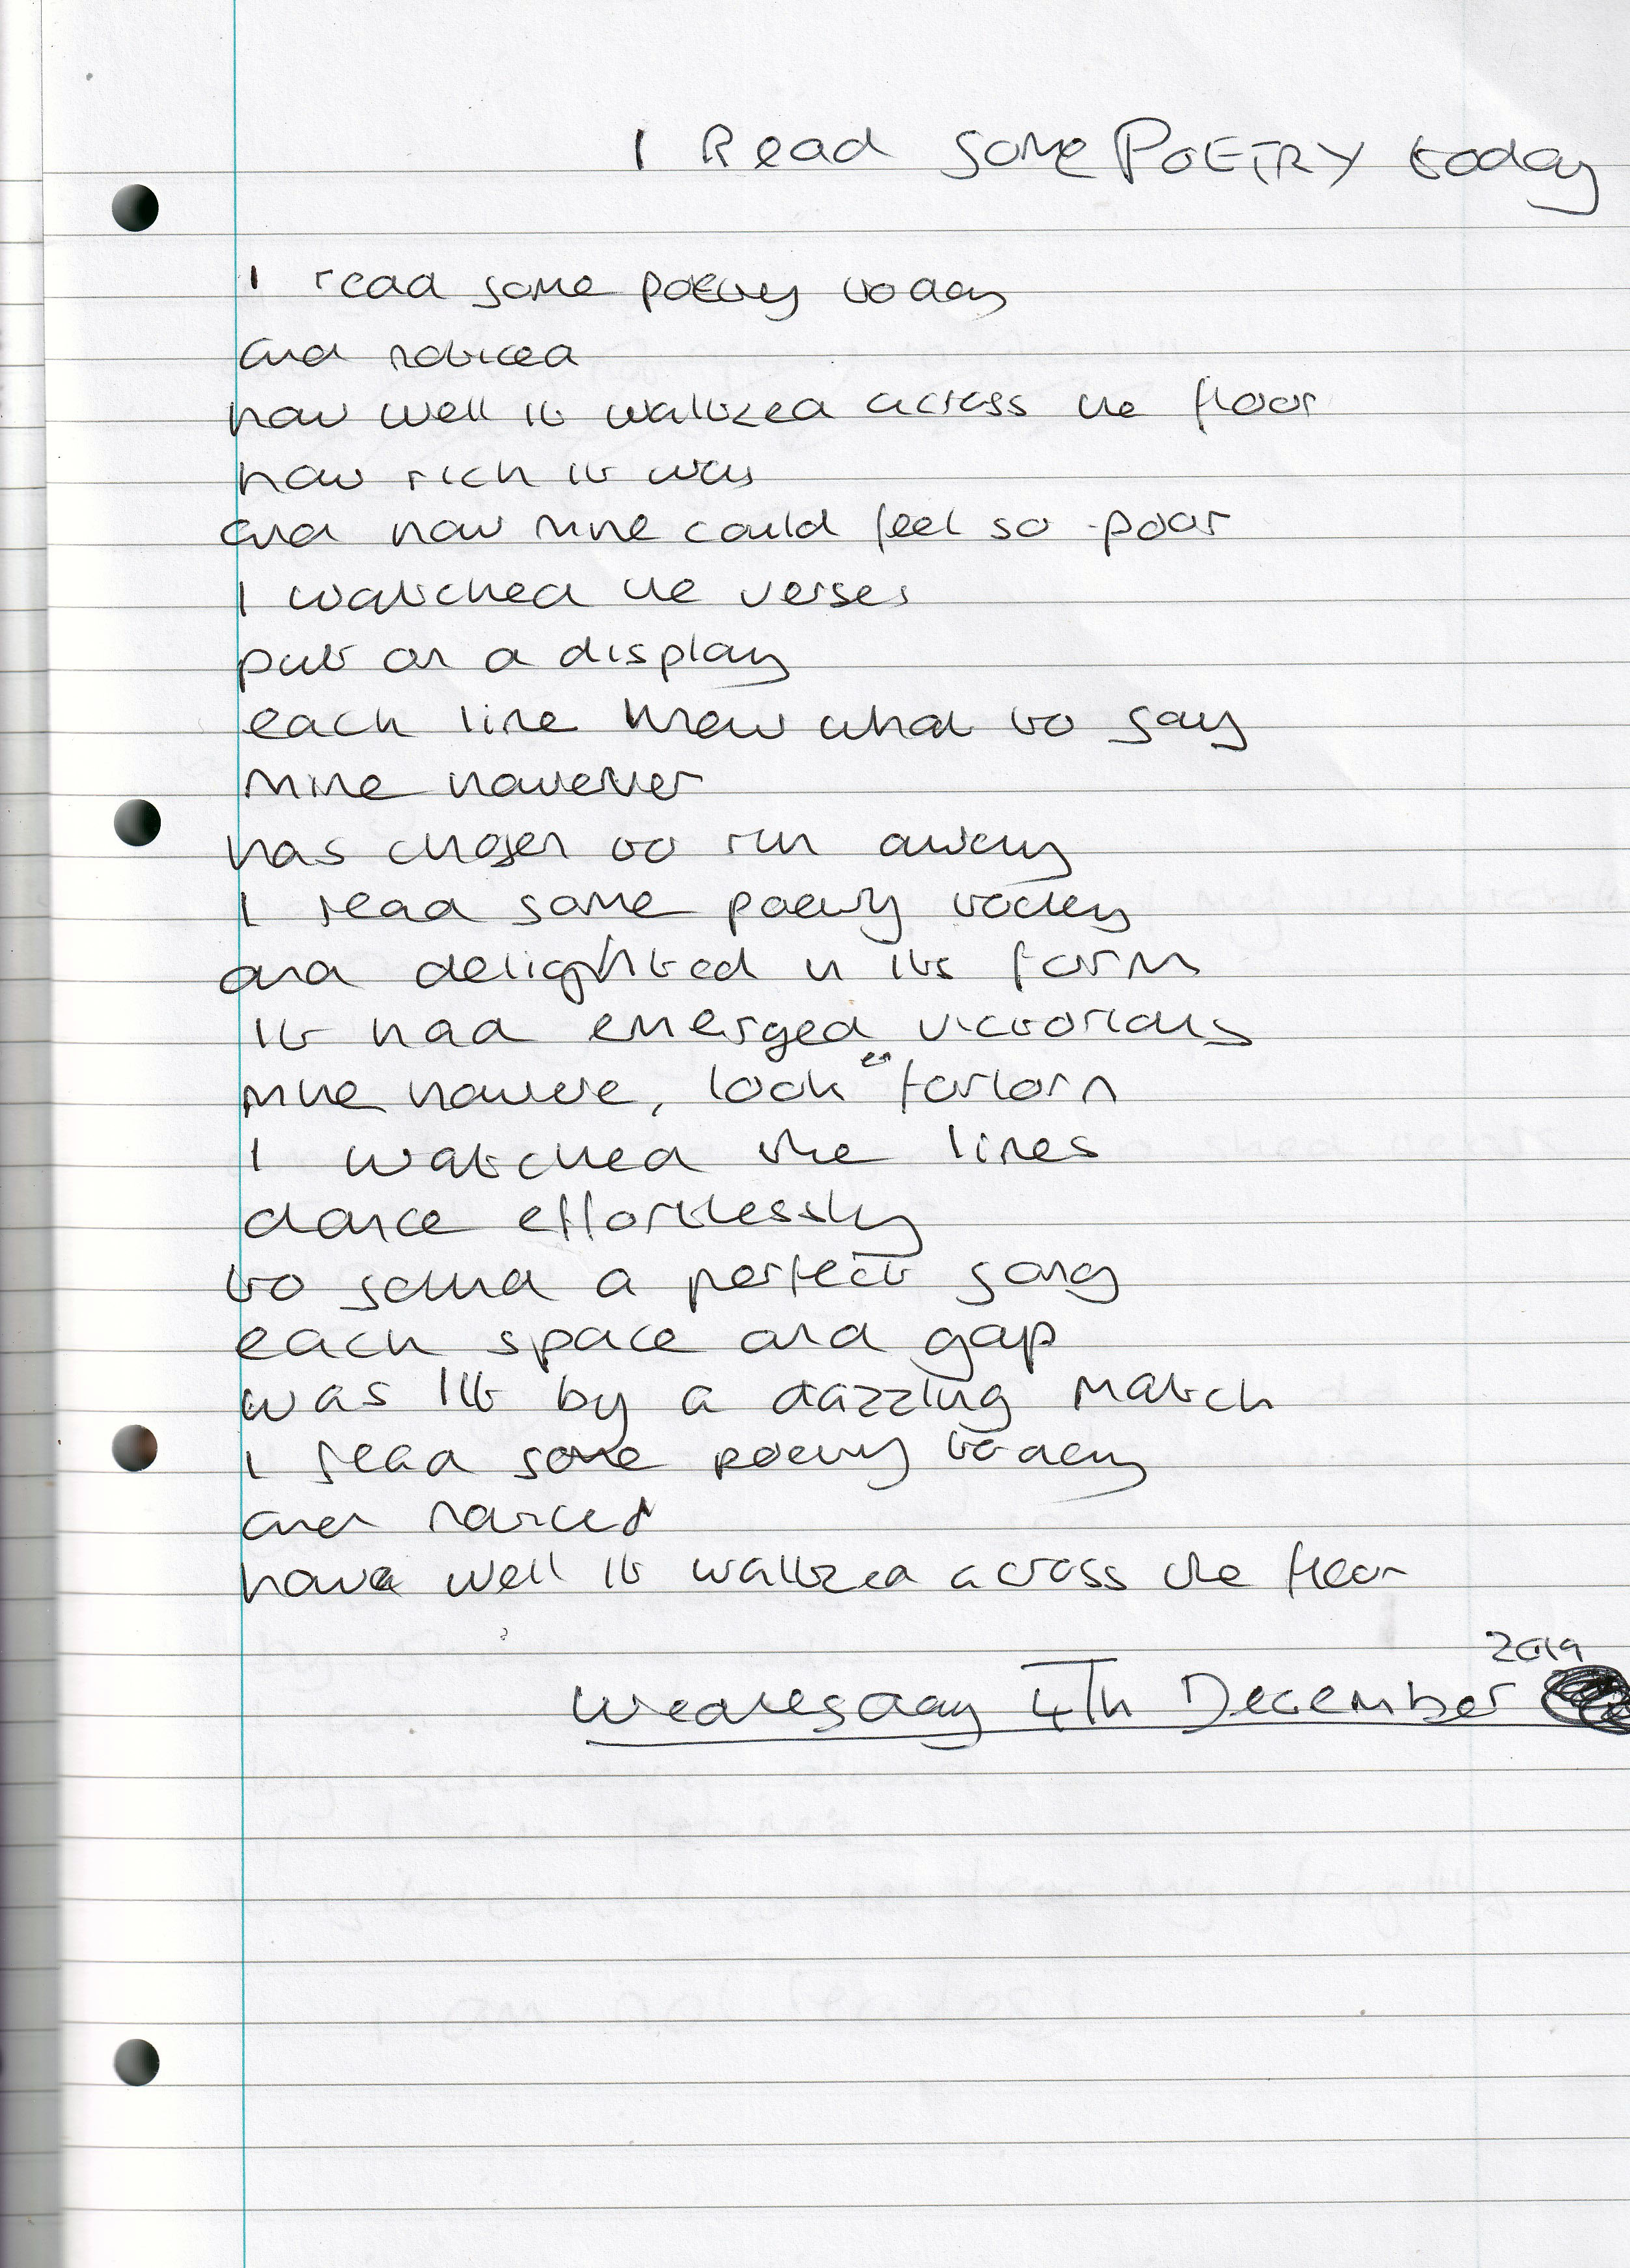 I Read some POETRY today
I read some poetry today
and noticed
how well it waltzed across the floor
how rich it was
and how mine could feel so poor
I watched the verses
put on a display
each line knew what to say
mine however
has chosen to run away
I read some poetry today
and delighted in its form
It had emerged victorious
mine however, looked forlorn
I watched the lines
dance effortlessly
to sound a perfect song
each space and gap
was lit by a dazzling match
I read some poetry today
and noticed
how well it waltzed across the floor
2019
Wednesday 4Th December